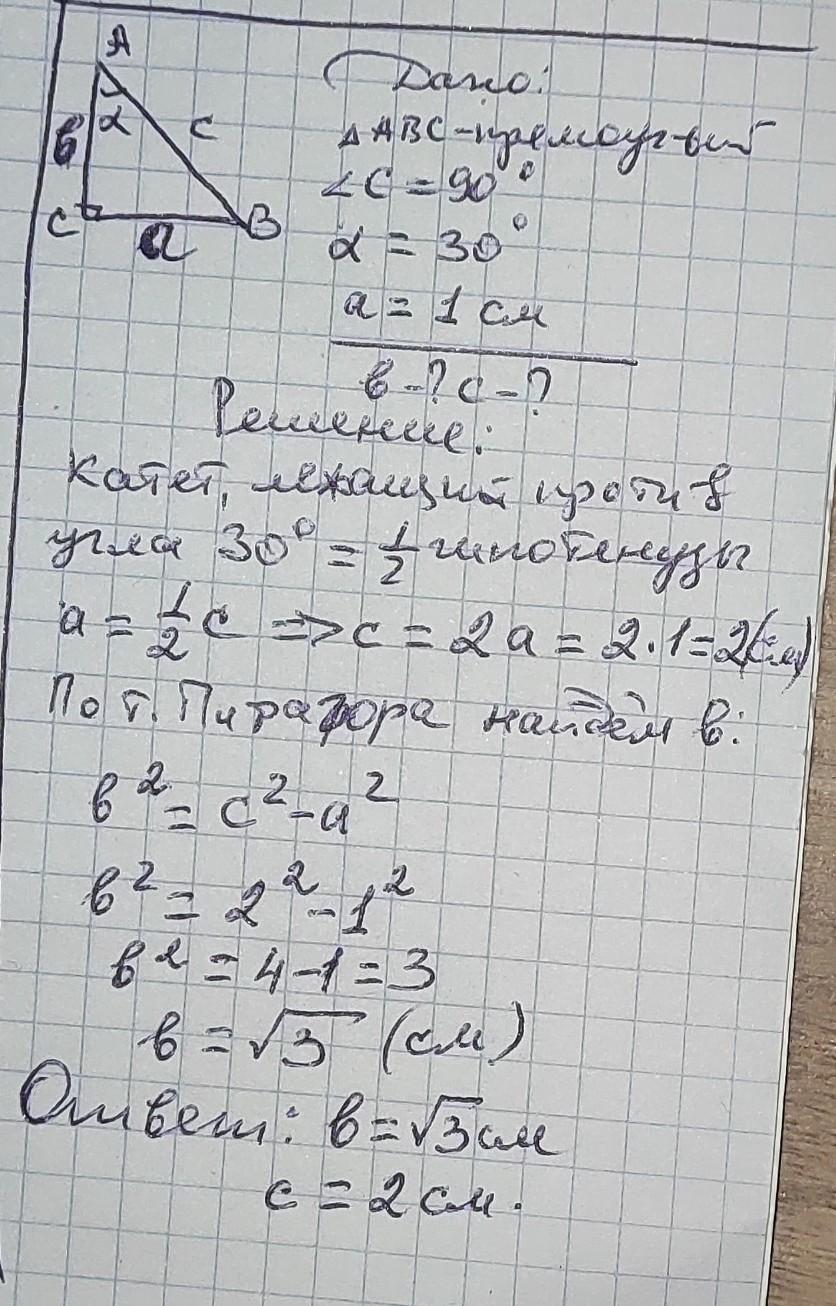 A
α
c
в
C
a
B
Дано:
△ABC-прямоуг-ый
∠C = 90°
α = 30°
a = 1 см
в -? c -?
Решение:
Катет, лежащий против
угла 30° = 1/2 гипотенузы
a = 1/2 c => c = 2a = 2·1 = 2(см)
По т. Пифагора найдём в:
в² = c² - a²
в² = 2² - 1²
в² = 4 - 1 = 3
в = √3 (см)
Ответ: в = √3 см
c = 2 см.